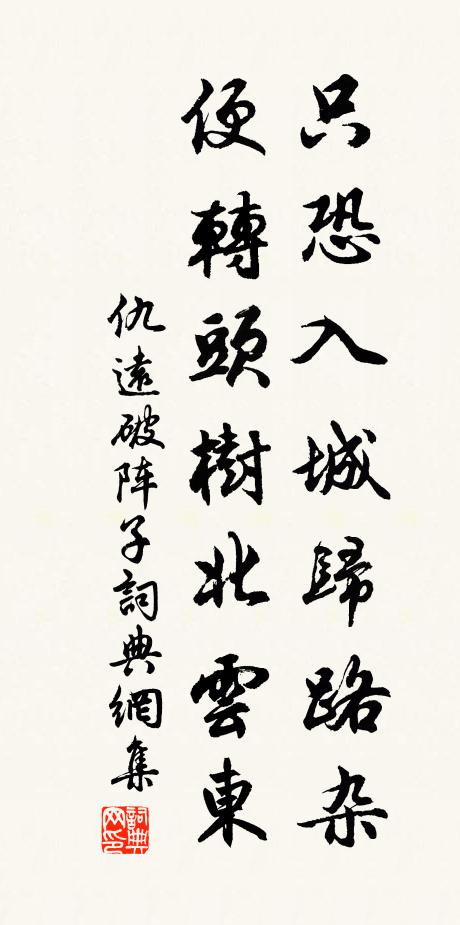 只恐入城歸路杂
便轉頭樹北雲東
仇遠破阵子詞典網集
詞典网印